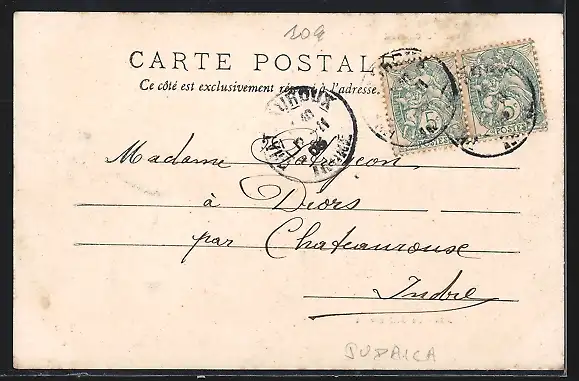 109
CARTE POSTALE
Ce côté est exclusivement réservé à l'adresse.
5 5
POSTES POSTES
Madame
à Diors
par Chateauroux
Indre
JUDAICA